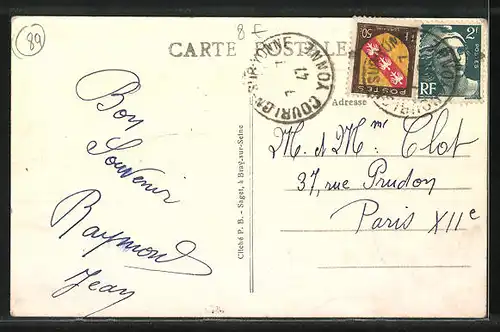 89
8 F
CARTE POSTALE
COURLON-SUR-YONNE YONNE
7 47
50
POSTES
2F
RF
Adresse
Bon
Souvenir
Raymond
Jean
Cliché P. B. - Saget, à Bray-sur-Seine
M. & Mme Clot
37, rue Prudon
Paris XIIe